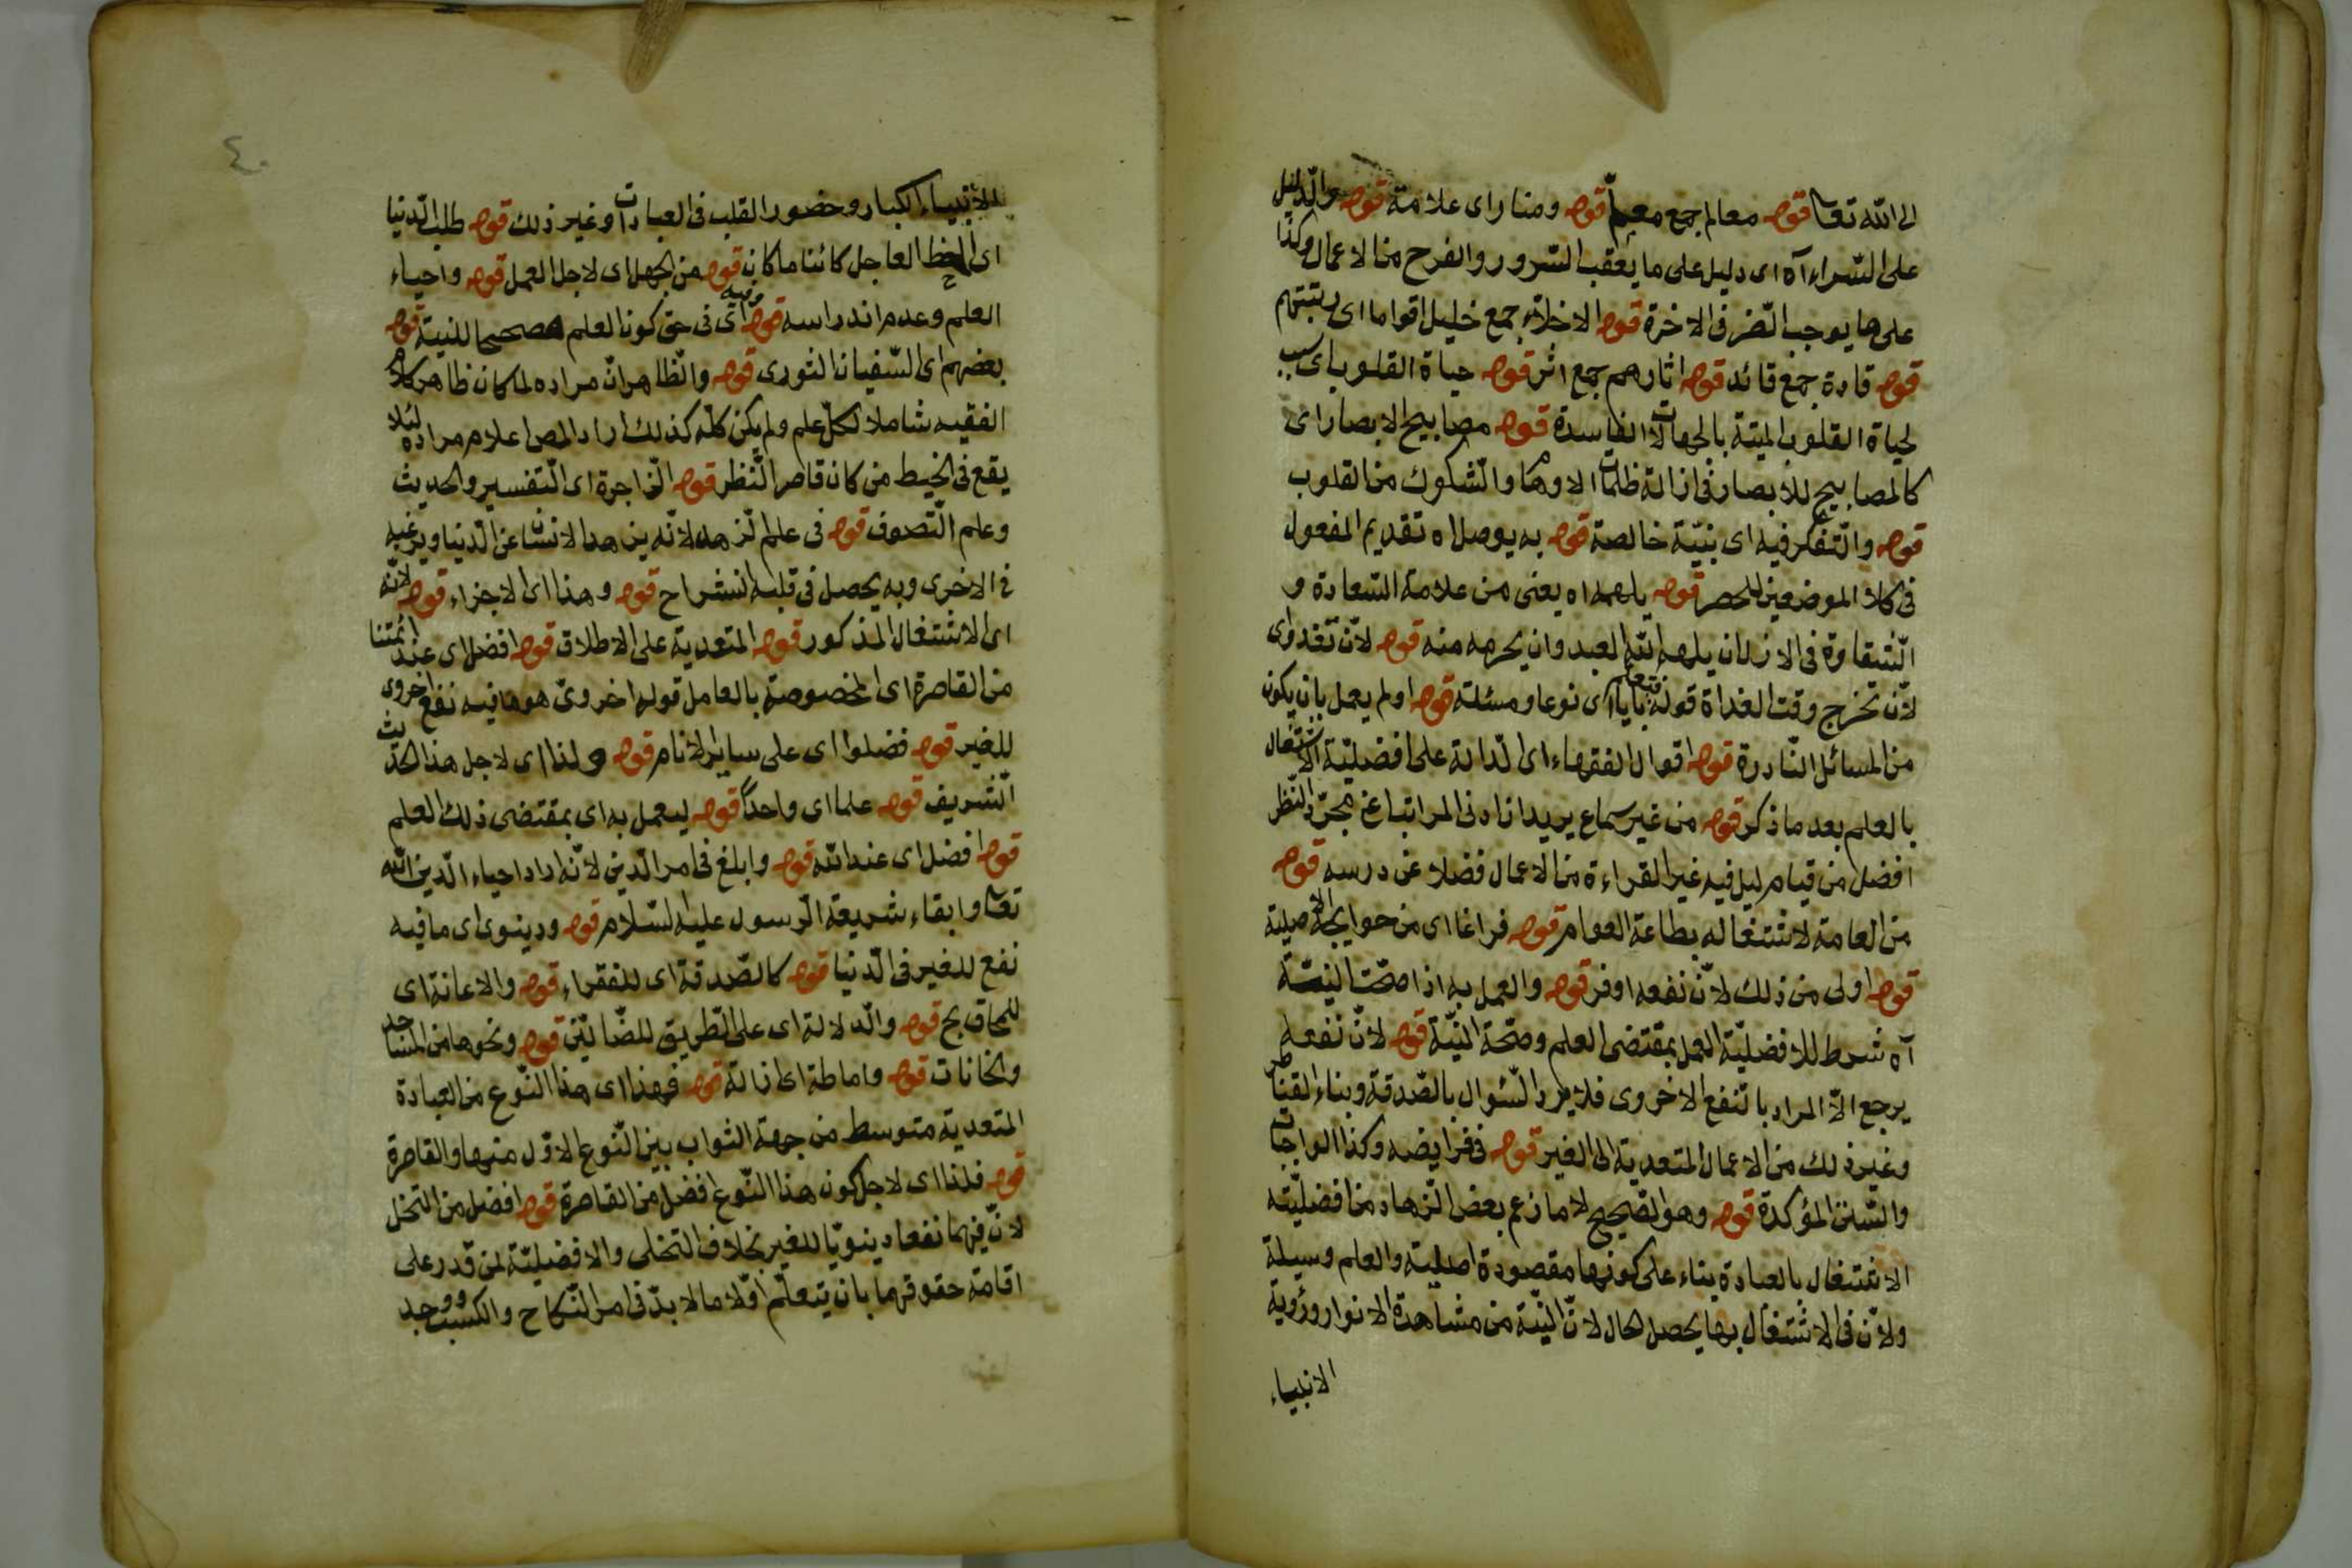 الى الله تعا قوله معالم جمع معلم قوله ومنار اى علامة قوله والدليل
على السراء آه اى دليل على ما يعقب السرور والفرح من الاعمال وكذا
على ما يوجب الضر فى الاخرة قوله الاخلاء جمع خليل اقواما اى رتبتهم
قوله قادة جمع قائد قوله اثارهم جمع اثر قوله حياة القلوب اى سبب
لحياة القلوب الميتة بالجهالات الفاسدة قوله مصابيح الابصار اى
كالمصابيح للأبصار فى ازالة ظلمات الاوهام والشكوك من القلوب
قوله والتفكر فيه اى بنيّة خالصة قوله به يوصل اه تقديم المفعول
فى كلا الموضعين للحصر قوله يلهمه اه يعنى من علامة السعادة و
الشقاوة فى الازل ان يلهمه الله العبد وان يحرمه منه قوله لأن تغدو اى
لأن تخرج وقت الغداة قوله فتعلم بابا اى نوعا ومسئلة قوله اولم يعمل بان يكون
من المسائل النادرة قوله اقوال الفقهاء اى الدالة على افضليّة الاشتغال
بالعلم بعد ما ذكر قوله من غير سماع يريد ان ادنى المراتب اعنى مجرّد النظر
افضل من قيام ليل فيه غير القراءة من الاعمال فضلا عن درسه قوله
من العامة لاشتغاله بطاعة العوام قوله فراغا اى من حوايجه الاصلية
قوله اولى من ذلك لأنّ نفعه اوفر قوله والعمل به اذا صحّت النيّة
آه شرط للافضليّة العمل بمقتضى العلم وصحّة النيّة قوله لأنّ نفعه
يرجع الآ المراد بالنفع الاخروى فلا يرد السؤال بالصّدقة وبناء القناطر
وغير ذلك من الاعمال المتعدية الى الغير قوله فى فرايضه وكذا الواجبات
والسّنن المؤكدة قوله وهو الصّحيح لا ما زعم بعض الزهاد من افضليّته
الاشتغال بالعبادة بناء على كونها مقصودة اصلية والعلم وسيلة
ولانّ فى الاشتغال بها يحصل لحال لانّ النيّة من مشاهدة الانوار ورؤية
الانبياء
٤٠
للانبياء الكبار وحضور القلب فى العبادات وغير ذلك قوله طلب الدنيا
اى الحظ العاجل كائنا ما كان قوله من الجهل اى لاجل العمل قوله واحياء
العلم وعدم اندراسه قوله وفيه اى فى حق كون العلم مصححا للنية قوله
بعضهم اى السّفيان الثورى قوله والظاهر انّ مراده لما كان ظاهر كلام
الفقيه شاملا لكلّ علم ولم يكن كلّه كذلك اراد المص اعلام مراده لئلا
يقع فى الخيط من كان قاصر النّظر قوله الزاجرة اى التفسير والحديث
وعلم التصوف قوله فى علم الزهد لانّه يزهد الانسان عن الدنيا ويرغبه
فى الاخرى وبه يحصل فى قلبه انشراح قوله وهذا اى الاجزاء قوله لأنّه
اى الاشتغال المذكور قوله المتعدية على الاطلاق قوله افضل اى عند ائمتنا
من القاصرة اى المخصوصة بالعامل قوله اخروىّ هو ما فيه نفع اخروى
للغير قوله فضلوا اى على ساير الانام قوله ولذا اى لاجل هذا الحديث
الشريف قوله علما اى واحدا قوله ليعمل به اى بمقتضى ذلك العلم
قوله افضل اى عند الله قوله وابلغ فى امر الدّين لأنّه اراد احياء الدّين الله
تعا وابقاء شريعة الرسول عليه السّلام قوله ودينوى اى ما فيه
نفع للغير فى الدّنيا قوله كالصّدقة اى للفقراء قوله والاعانة اى
للمحاويج قوله والدلالة اى على الطريق للضّالّين قوله ونحوها من المساجد
والخانات قوله واماطة اى ازالة قوله فهذا اى هذا النّوع من العبادة
المتعدية متوسط من جهة الثواب بين النّوع الاوّل منها والقاصرة
قوله فلذا اى لاجل كون هذا النّوع افضل من القاصرة قوله افضل من التخلى
لانّ فيهما نفعا دينويّا للغير بخلاف التخلى والافضليّة لمن قدر على
اقامة حقوقهما بان يتعلّم اوّلا ما لا بدّ فى امر النّكاح والكسب ووجد